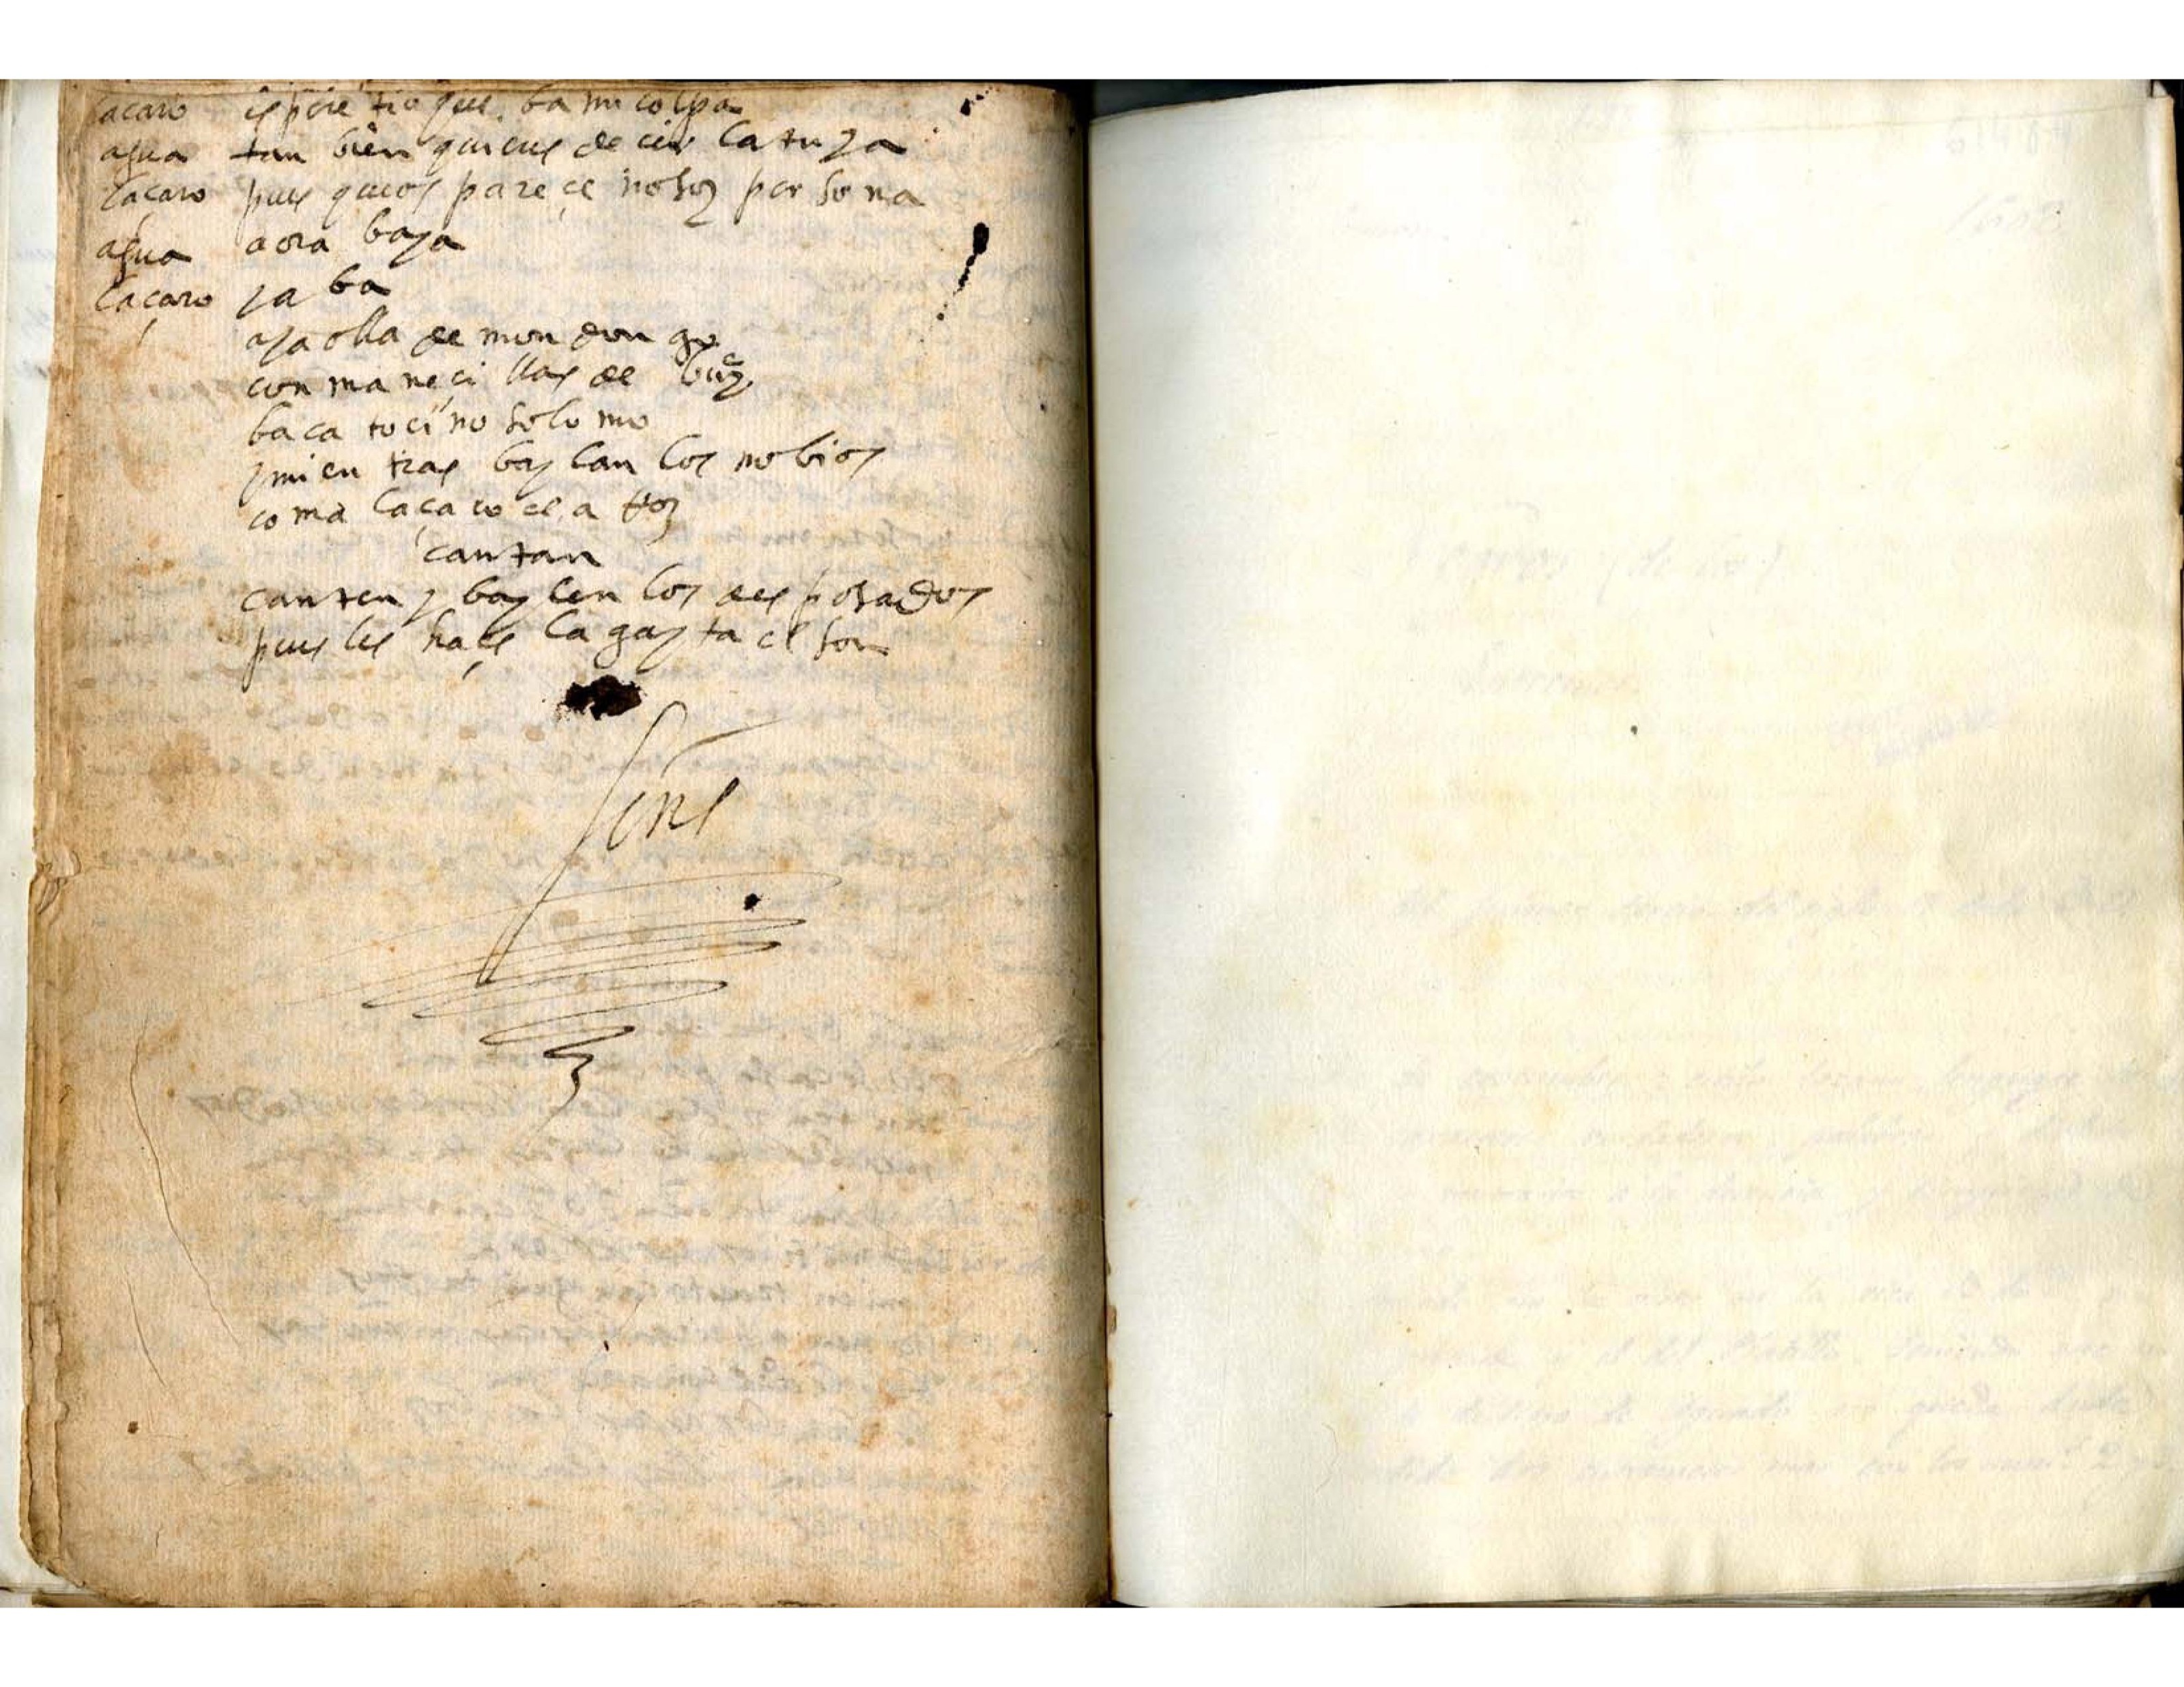 laçaro espere tio que ba mi colpa
agua tan bien quieres decir la tuya
laçaro pues que os pareçe no soy persona
agua aora baya
laçaro ya ba
aya olla de mondongo
con maneçillas de buey
baca toçino solomo
y mientras baylan los nobios
coma laçaro el arroz
cantan
canten y baylen los desposados
pues les haçe la gayta el son
fine